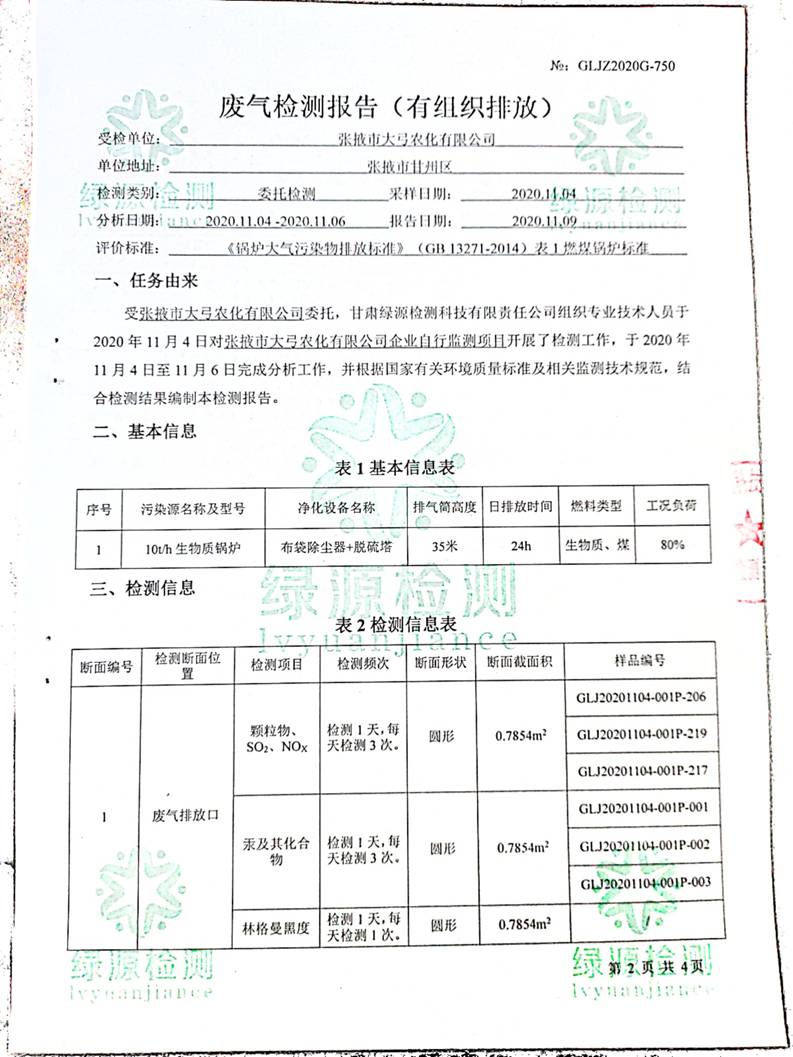 №：GLJZ2020G-750
废气检测报告（有组织排放）
受检单位： 张掖市大弓农化有限公司
单位地址： 张掖市甘州区
检测类别： 委托检测 采样日期： 2020.11.04
分析日期： 2020.11.04 -2020.11.06 报告日期： 2020.11.09
评价标准： 《锅炉大气污染物排放标准》（GB 13271-2014）表 1 燃煤锅炉标准
一、任务由来
受张掖市大弓农化有限公司委托，甘肃绿源检测科技有限责任公司组织专业技术人员于
2020 年 11 月 4 日对张掖市大弓农化有限公司企业自行监测项目开展了检测工作，于 2020 年
11 月 4 日至 11 月 6 日完成分析工作，并根据国家有关环境质量标准及相关监测技术规范，结
合检测结果编制本检测报告。
二、基本信息
表 1 基本信息表
序号 污染源名称及型号 净化设备名称 排气筒高度 日排放时间 燃料类型 工况负荷
1 10t/h 生物质锅炉 布袋除尘器+脱硫塔 35米 24h 生物质、煤 80%
三、检测信息
绿源检测
表 2 检测信息表
lvyuanjiance
断面编号 检测断面位
置 检测项目 检测频次 断面形状 断面截面积 样品编号
1 废气排放口
颗粒物、
SO₂、NOX
检测 1 天，每
天检测 3 次。
圆形 0.7854m²
GLJ20201104-001P-206
GLJ20201104-001P-219
GLJ20201104-001P-217
汞及其化合
物
检测 1 天，每
天检测 3 次。
圆形 0.7854m²
GLJ20201104-001P-001
GLJ20201104-001P-002
GLJ20201104-001P-003
林格曼黑度
检测 1 天，每
天检测 1 次。
圆形 0.7854m² /
绿源检测
lvyuanjiance
第 2 页 共 4 页